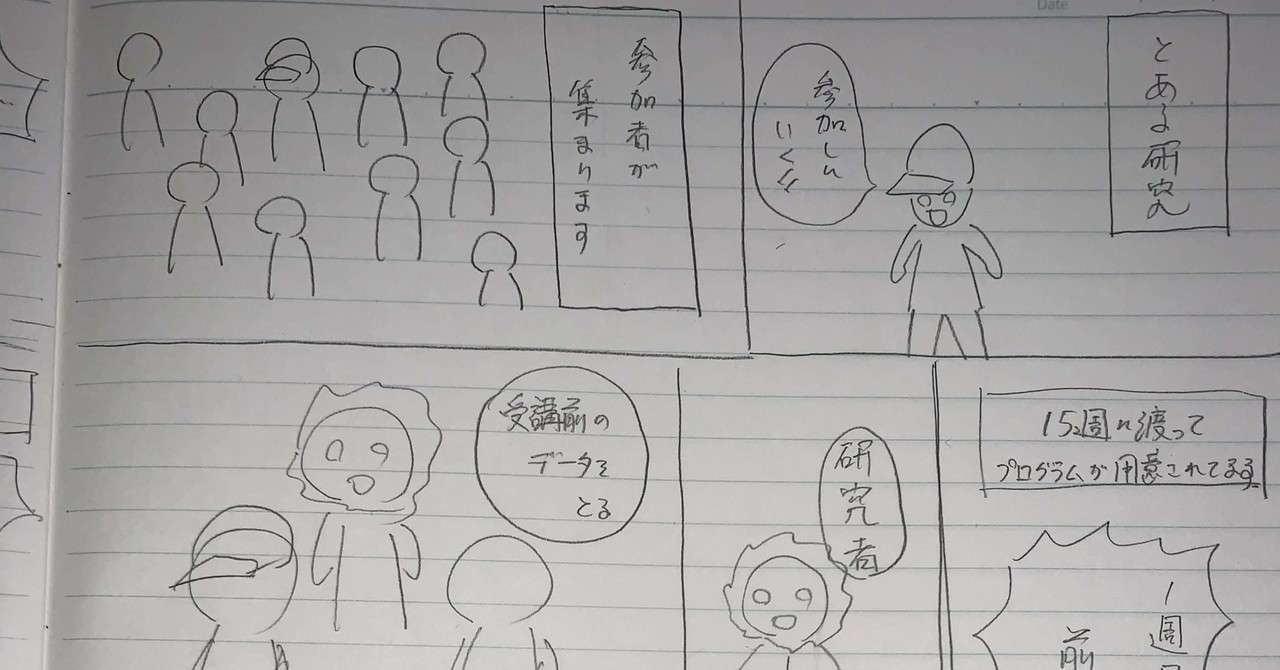 とある研究
参加しに
いくぞ
参加者が
集まります
15週に渡って
プログラムが用意されてます
1週
前
研究者
受講前の
データを
とる
Date